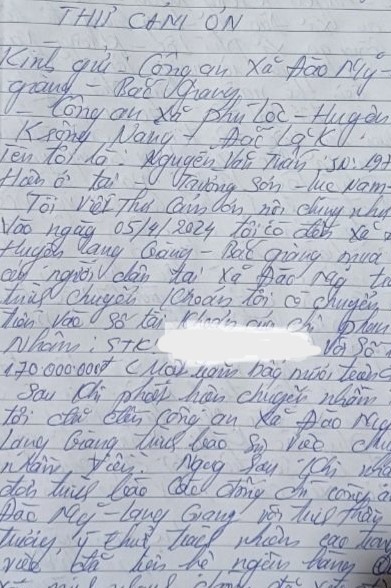 THƯ CẢM ƠN
Kính gửi: Công an xã Đào Mỹ
giang - Bắc Giang
- Công an xã Phú Lộc - Huyện
Krông Năng - Đắc Lắk.
Tên tôi là: Nguyễn Văn Tuân; SN: 197
Hiện ở tại - Trường Sơn - Lục Nam
Tôi viết thư cảm ơn nội dung như
Vào ngày 05/4/2024 tôi có đến xã
Huyện Lạng Giang - Bắc giang mua
người dân tại xã Đào Mỹ
chuyển khoản tôi có chuyển
tiền vào số tài khoản của chị
nhầm: STK Với số
170.000.000đ (Một trăm bảy mươi triệu
Sau khi phát hiện chuyển nhầm
tôi đã đến công an xã Đào Mỹ
Lạng Giang trình báo sự việc
Ngay sau khi
trình báo các đồng chí công
Đào Mỹ - Lạng Giang với tinh thần
ý thức trách nhiệm cao trong
việc đã liên hệ ngân hàng